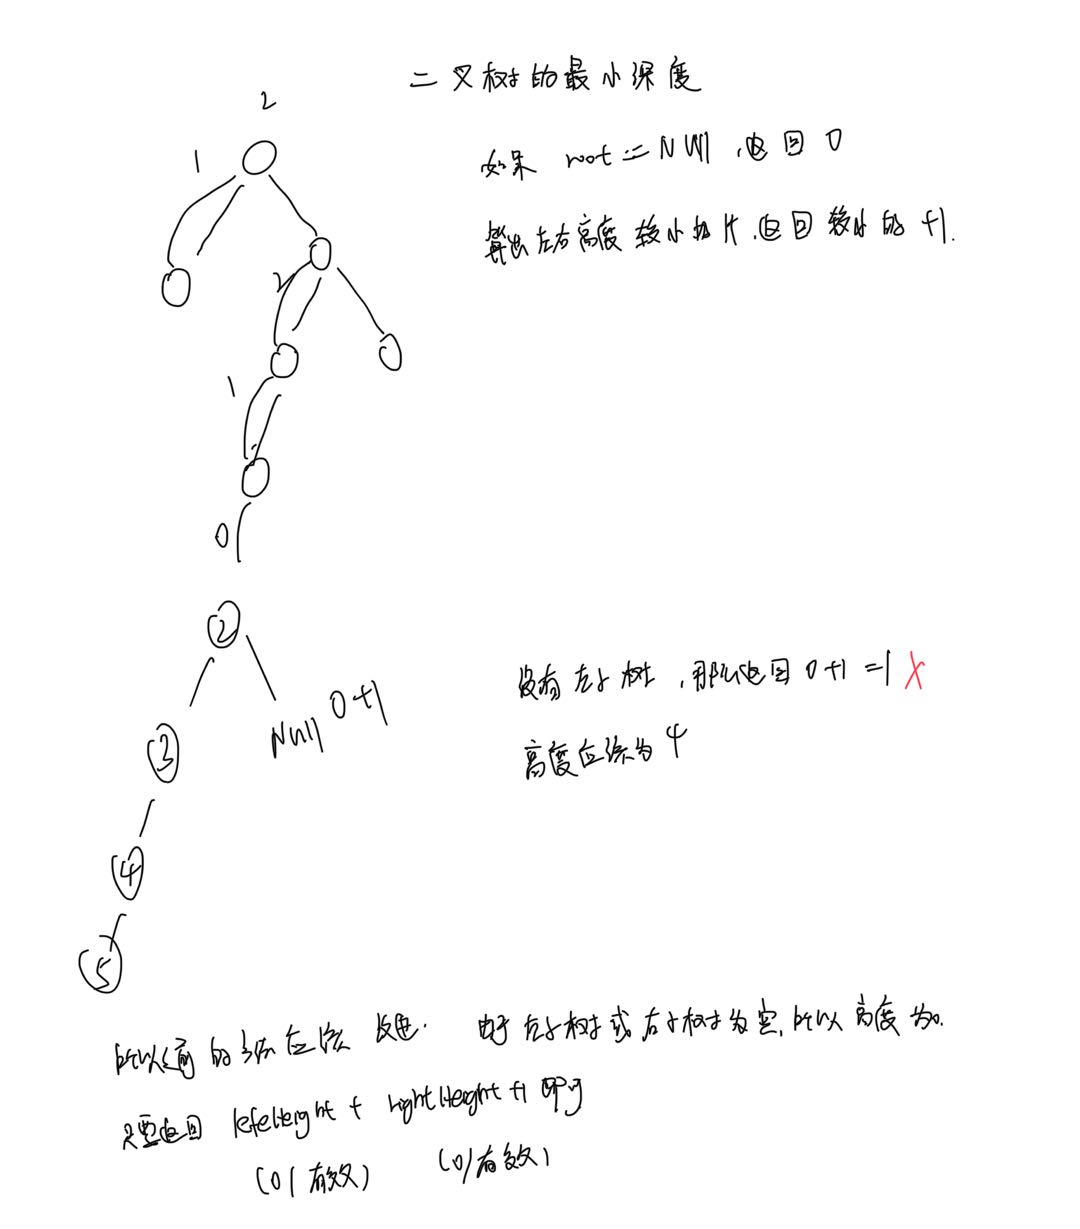 二叉树的最小深度
2
1
如果 root == NUll,返回 0
算出左右高度 较小 返回 较小的 +1.
2
1
0
2
Null 0+1
没有左子树,那么返回 0+1 =1 X
3
高度应该为 4
4
5
所以之前的 应该 改进. 由于 左子树 或 右子树 为空,所以 高度 为0.
只要返回 lefeHeight + rightHeight +1 即可
(0/有效) (0/有效)